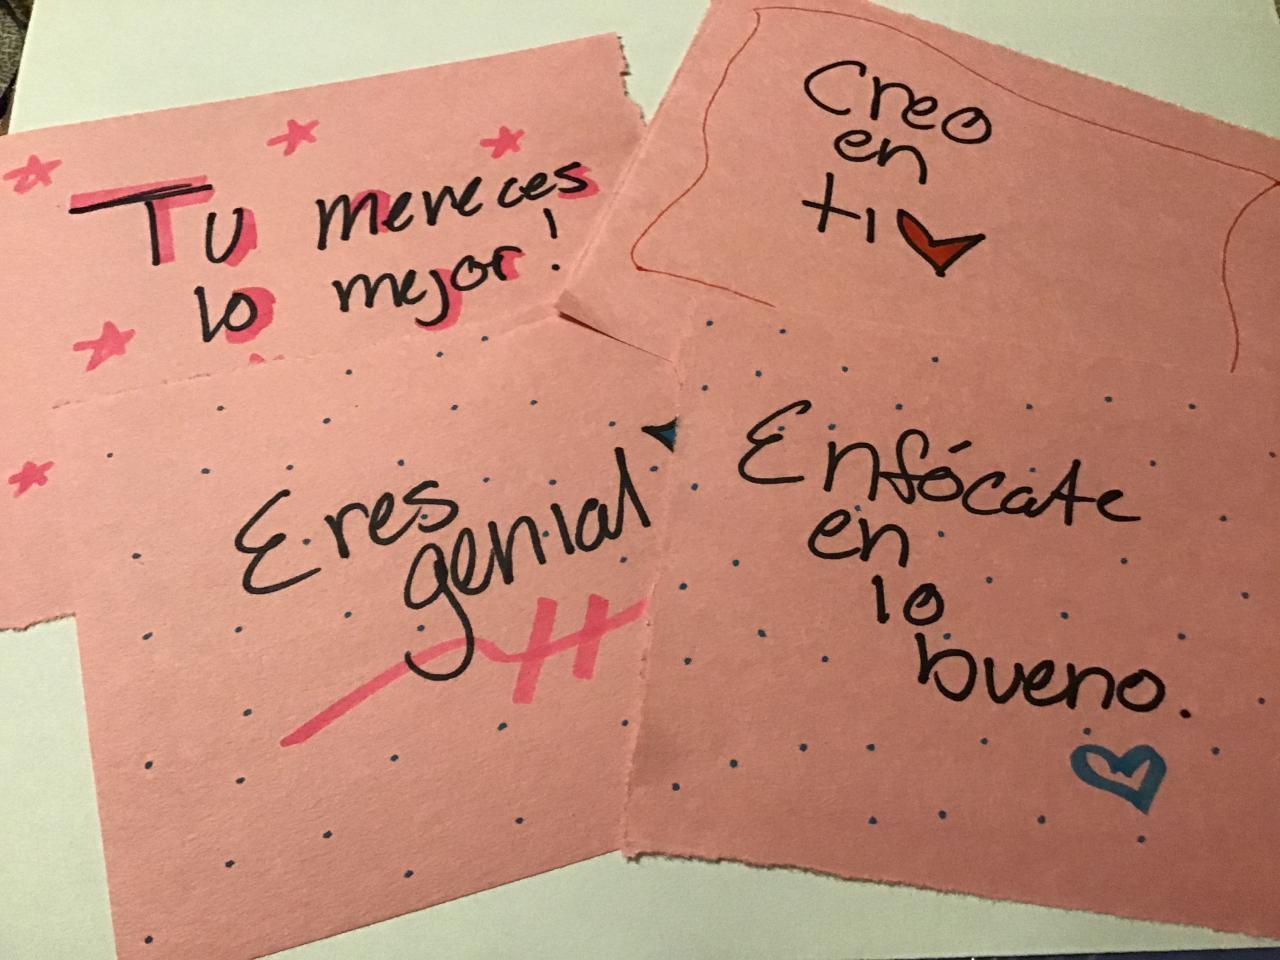 Tu mereces
lo mejor!
Creo
en
ti
Eres
genial
Enfócate
en
lo
bueno.